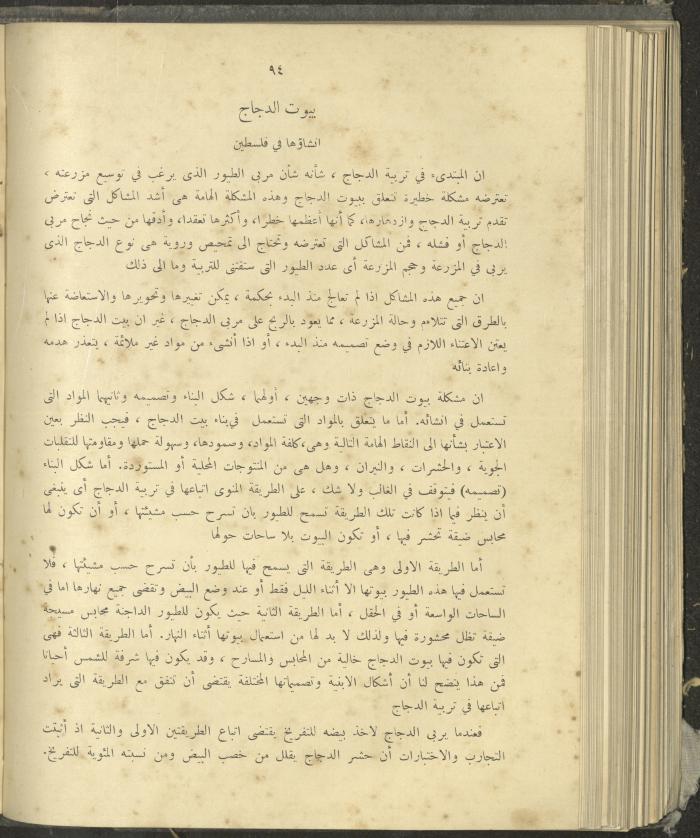 ٩٤
بيوت الدجاج
انشاؤها في فلسطين
ان المبتدىء في تربية الدجاج ، شأنه شأن مربى الطيور الذى يرغب في توسيع مزرعته ،
تعترضه مشكلة خطيرة تتعلق ببيوت الدجاج وهذه المشكلة الهامة هى أشد المشاكل التى تعترض
تقدم تربية الدجاج وازدهارها، كما أنها أعظمها خطرا، وأكثرها تعقدا، وأدقها من حيث نجاح مربى
الدجاج أو فشله ، فمن المشاكل التى تعترضه وتحتاج الى تمحيص وروية هى نوع الدجاج الذى
يربى في المزرعة وحجم المزرعة أى عدد الطيور التى ستقتنى للتربية وما الى ذلك
ان جميع هذه المشاكل اذا لم تعالج منذ البدء بحكمة ، يمكن تغييرها وتحويرها والاستعاضة عنها
بالطرق التى تتلاءم وحالة المزرعة ، مما يعود بالربح على مربى الدجاج ، غير ان بيت الدجاج اذا لم
يعتن الاعتناء اللازم في وضع تصميمه منذ البدء ، أو اذا أنشىء من مواد غير ملائمة ، يتعذر هدمه
واعادة بنائه
ان مشكلة بيوت الدجاج ذات وجهين ، أولهما ، شكل البناء وتصميمه وثانيهما المواد التى
تستعمل في انشائه. أما ما يتعلق بالمواد التى تستعمل في بناء بيت الدجاج ، فيجب النظر بعين
الاعتبار بشأنها الى النقاط الهامة التالية وهى، كلفة المواد، وصمودها، وسهولة حملها ومقاومتها للتقلبات
الجوية ، والحشرات ، والنيران ، وهل هى من المنتوجات المحلية أو المستوردة. أما شكل البناء
(تصميمه) فيتوقف في الغالب ولا شك ، على الطريقة المنوى اتباعها في تربية الدجاج أى ينبغى
أن ينظر فيما اذا كانت تلك الطريقة تسمح للطيور بان تسرح حسب مشيئتها ، أو أن تكون لها
محابس ضيقة تحشر فيها ، أو تكون البيوت بلا ساحات حولها
أما الطريقة الاولى وهى الطريقة التى يسمح فيها للطيور بأن تسرح حسب مشيئتها ، فلا
تستعمل فيها هذه الطيور بيوتها الا أثناء الليل فقط أو عند وضع البيض وتقضى جميع نهارها اما في
الساحات الواسعة أو في الحقل ، أما الطريقة الثانية حيث يكون للطيور الداجنة محابس مسيجة
ضيقة تظل محشورة فيها ولذلك لا بد لها من استعمال بيوتها أثناء النهار. أما الطريقة الثالثة فهى
التى تكون فيها بيوت الدجاج خالية من المحابس والمسارح ، وقد يكون فيها شرفة للشمس أحيانا
فمن هذا يتضح لنا أن أشكال الابنية وتصميماتها المختلفة يقتضى أن تتفق مع الطريقة التى يراد
اتباعها في تربية الدجاج
فعندما يربى الدجاج لاخذ بيضه للتفريخ يقتضى اتباع الطريقتين الاولى والثانية اذ أثبتت
التجارب والاختبارات أن حشر الدجاج يقلل من خصب البيض ومن نسبته المئوية للتفريخ.